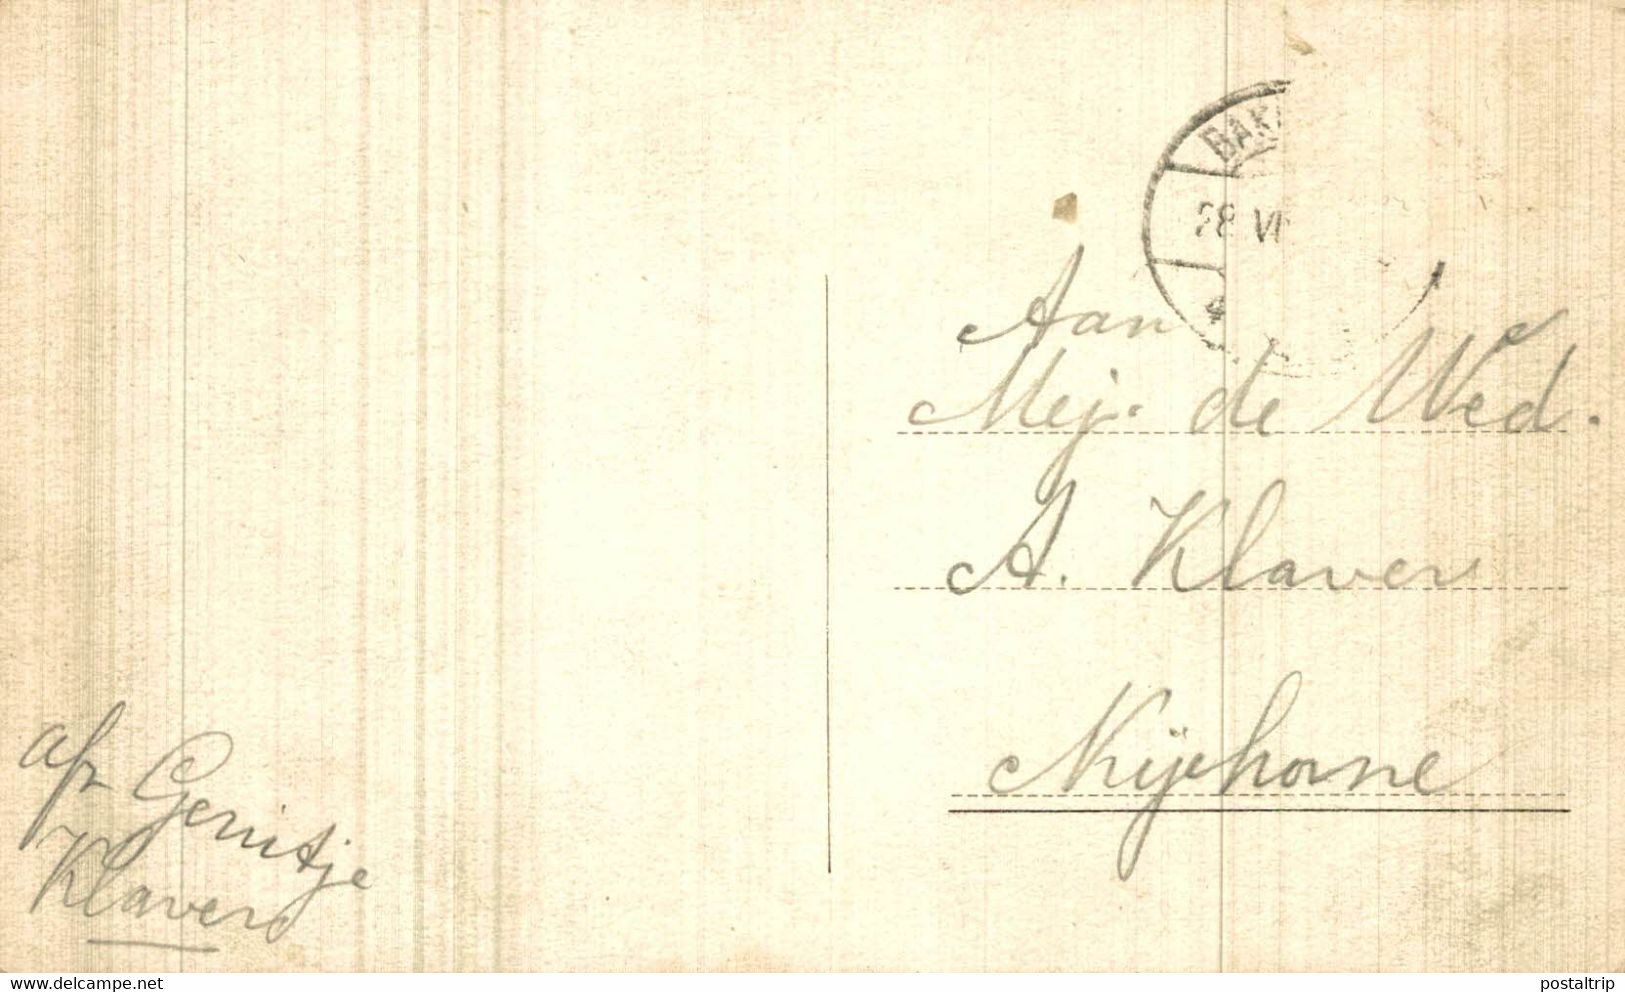 BAK
28 VI
Aan
Mej. de Wed.
A. Klaver
Nijehorne
afz Gerritje
Klaver
delcampe.net
postaltrip